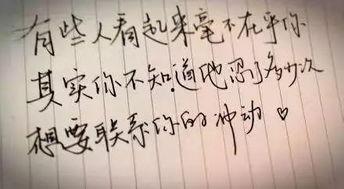 有些人看起来毫不在乎你
其实你不知道他忍了多少次
想要联系你的冲动♡